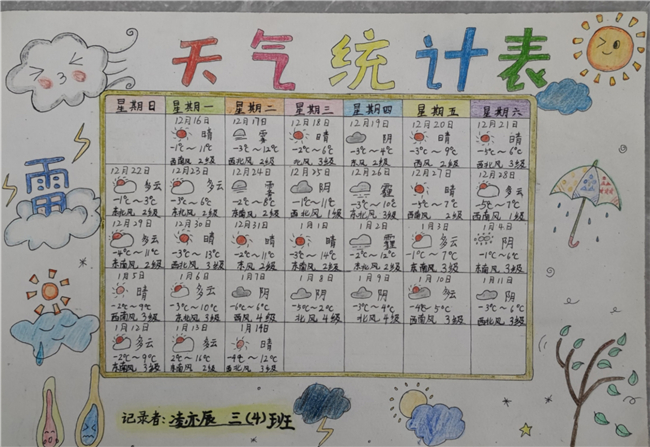 天气统计表
星期日 星期一 星期二 星期三 星期四 星期五 星期六
12月16日 12月17日 12月18日 12月19日 12月20日 12月21日
晴 雾 晴 阴 晴 晴
-1℃~11℃ -3℃~12℃ -2℃~6℃ -3℃~4℃ -3℃~9℃ -2℃~6℃
西南风 2级 西北风 2级 北风 3级 东风 2级 西南风 2级 西北风 3级
12月22日 12月23日 12月24日 12月25日 12月26日 12月27日 12月28日
多云 多云 雾 阴 霾 晴 多云
-1℃~3℃ -3℃~6℃ -2℃~8℃ -1℃~4℃ -3℃~10℃ -4℃~7℃ -5℃~7℃
东北风 2级 东北风 2级 东南风 2级 西北风 1级 东南风 3级 西北风 2级 西南风 1级
雷
12月29日 12月30日 12月31日 1月1日 1月2日 1月3日 1月4日
多云 晴 晴 晴 霾 多云 阴
-4℃~11℃ -3℃~13℃ -2℃~11℃ -3℃~14℃ -2℃~12℃ -1℃~7℃ -1℃~6℃
东南风 2级 西北风 3级 东南风 2级 东风 2级 北风 2级 东南风 3级 东南风 2级
1月5日 1月6日 1月7日 1月8日 1月9日 1月10日 1月11日
晴 多云 阴 阴 阴 多云 阴
-2℃~9℃ -3℃~10℃ -6℃~6℃ -3℃~2℃ -3℃~4℃ -4℃~5℃ -3℃~6℃
西南风 3级 东北风 3级 西风 4级 北风 4级 北风 4级 西南风 3级 西南风 3级
1月12日 1月13日 1月14日
多云 多云 晴
-2℃~9℃ 2℃~16℃ -4℃~12℃
东南风 3级 西南风 2级 西北风 3级
记录者:凌亦辰 三(4)班